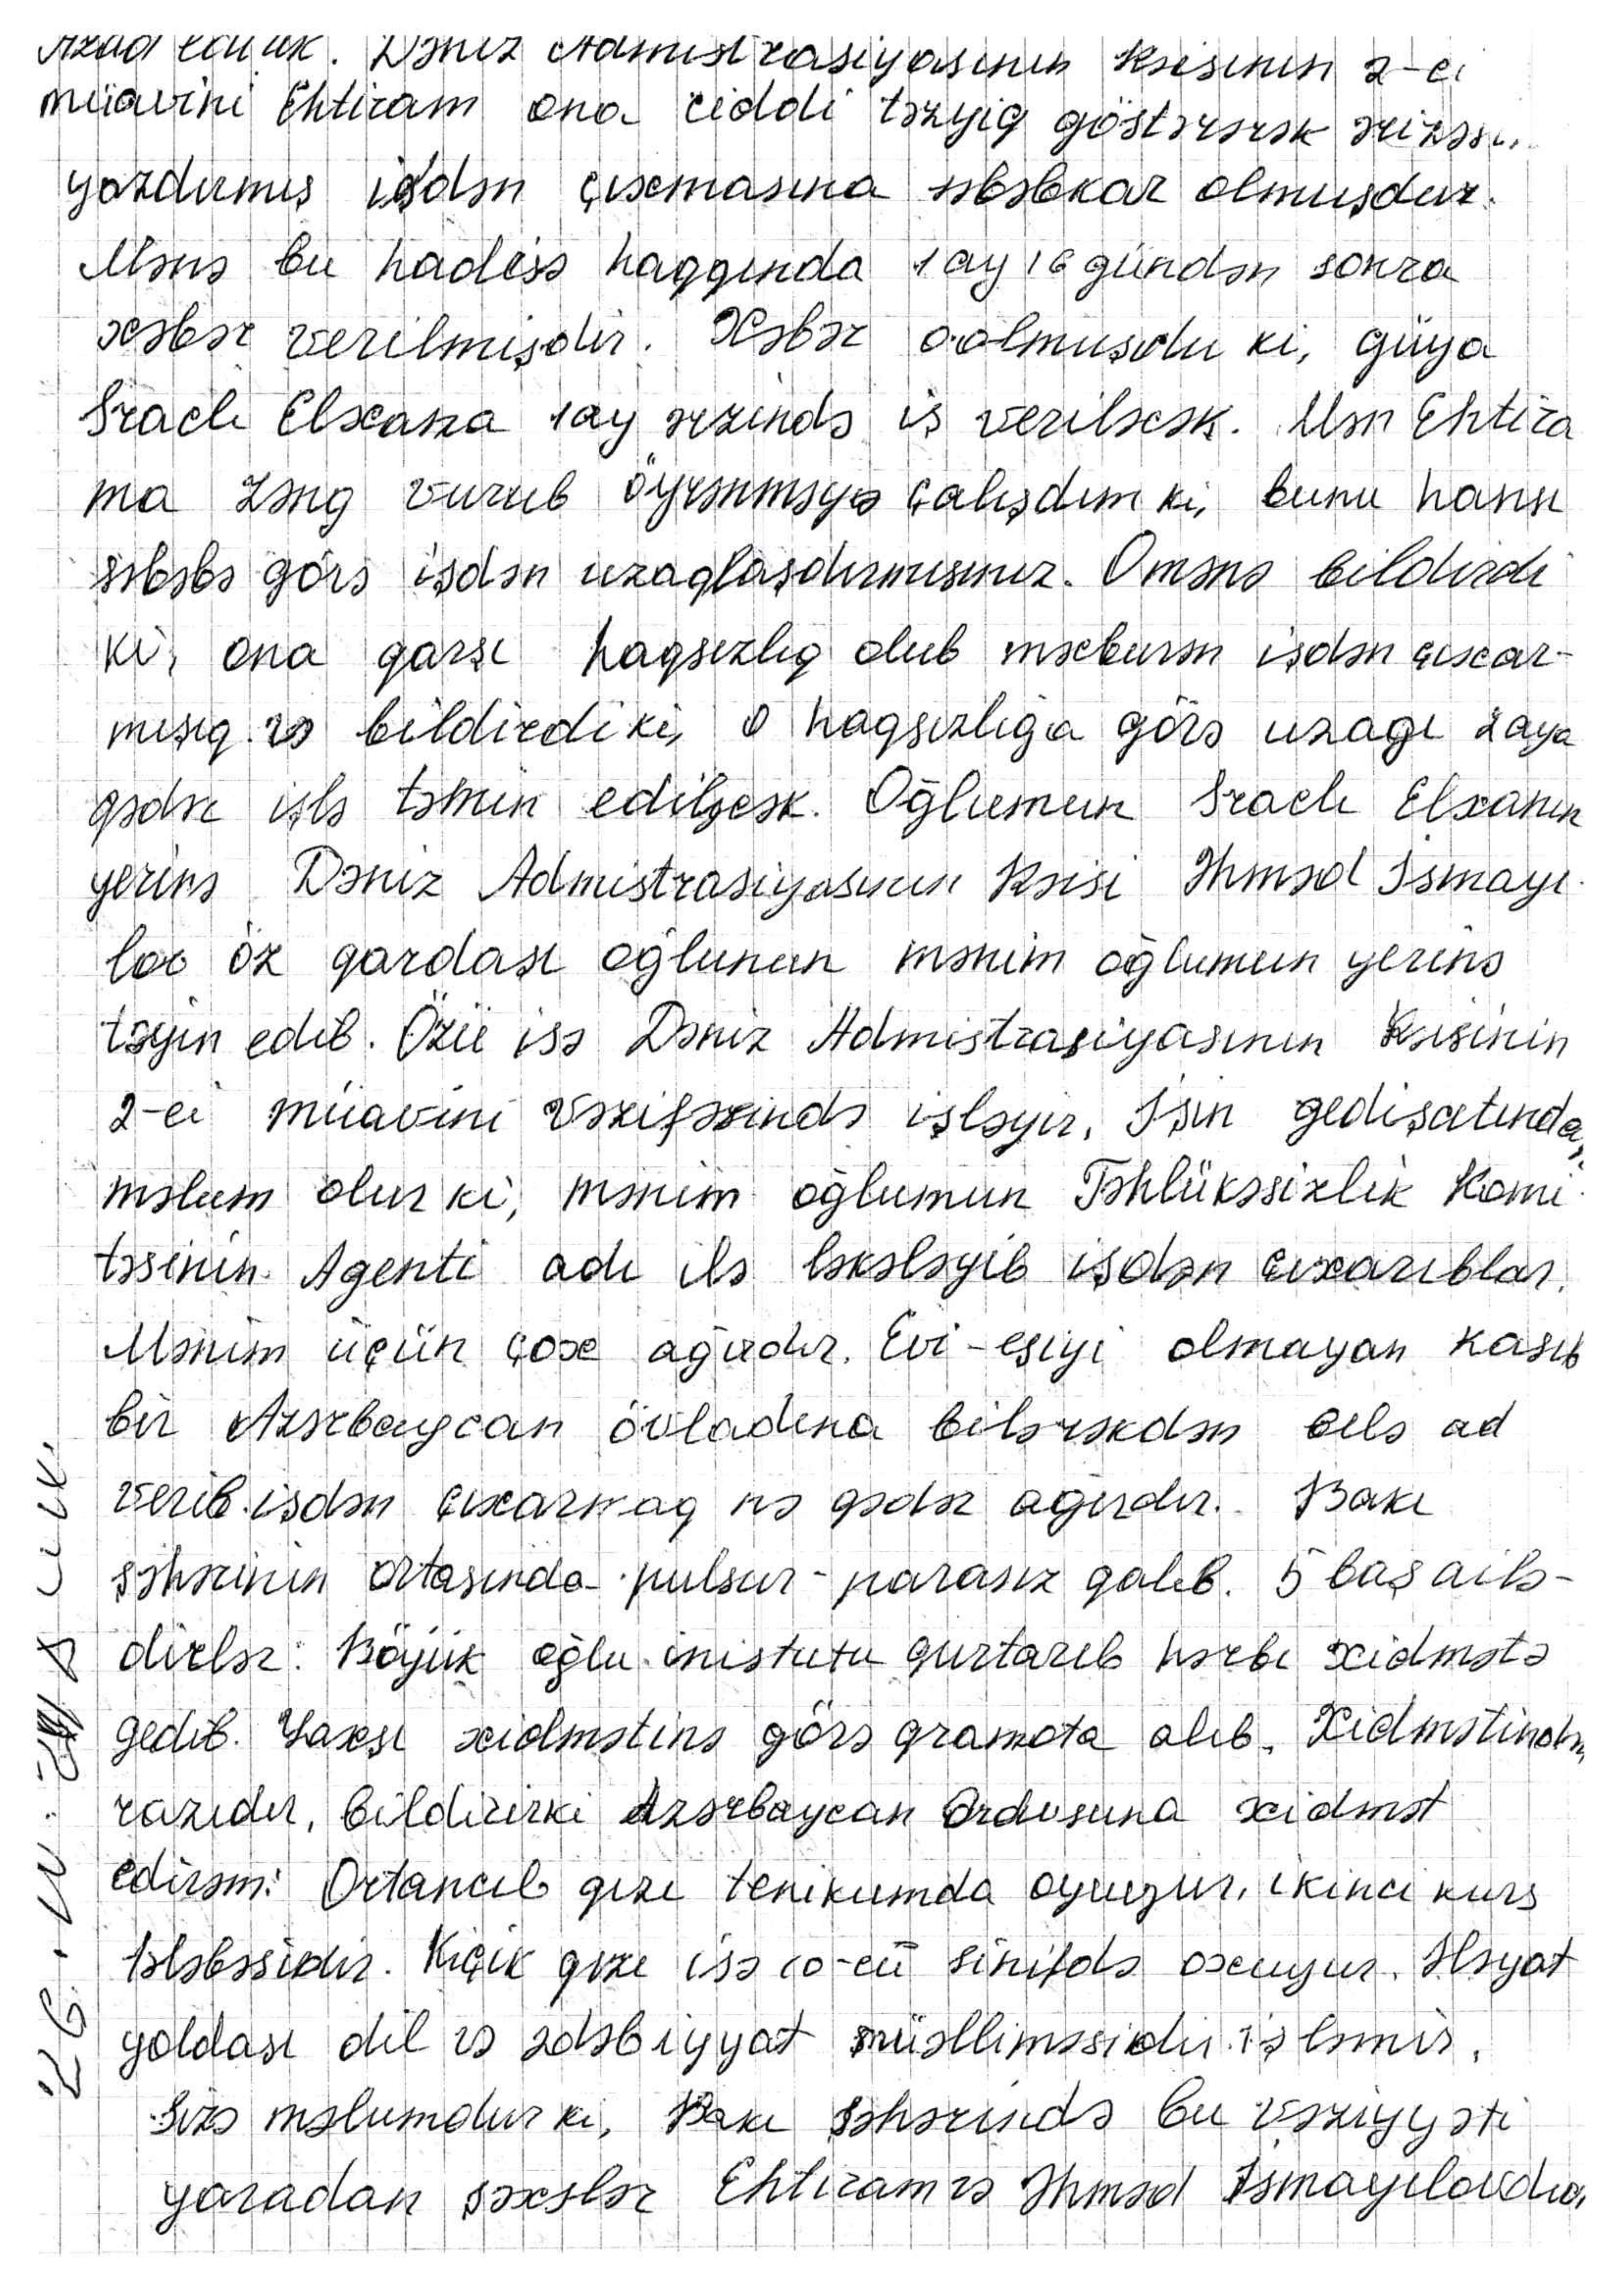 Azad edilik. Dəniz Admistrasiyasının Rəisinin 2-ci
müavini Ehtiram ona ciddi təzyiq göstərərək ərizəsin
yazdırmış işdən çıxmasına səbəbkar olmuşdur.
Mənə bu hadisə haqqında 1 ay 16 gündən sonra
xəbər verilmişdir. Xəbər o olmuşdu ki, güya
İracli Elxana 1 ay ərzində iş veriləcək. Mən Ehtira
ma zəng vurub öyrənməyə çalışdım ki, bunu hansı
səbəbə görə işdən uzaqlaşdırmısınız. O mənə bildirdi
ki, ona qarşı haqsızlıq olub məcburən işdən çıxar-
mışıq və bildirdi ki, o haqsızlığa görə uzağı 2 aya
qədər işlə təmin ediləcək. Oğlumun İracli Elxanın
yerinə Dəniz Admistrasiyasının Rəisi Əhməd İsmayı-
lov öz qardaşı oğlunun mənim oğlumun yerinə
təyin edib. Özü isə Dəniz Admistrasiyasının Rəisinin
2-ci müavini vəzifəsində işləyir. İşin gedişatında
məlum olur ki, mənim oğlumun Təhlükəsizlik Komi
təsinin Agenti adı ilə ləkələyib işdən çıxarıblar.
Mənim üçün çox ağırdır. Evi-eşiyi olmayan kasıb
bir Azərbaycan övladına bilərəkdən belə ad
verib işdən çıxarmaq nə qədər ağırdır. Bakı
şəhərinin ortasında pulsuz-parasız qalıb. 5 baş ailə-
dirlər. Böyük oğlu inistutu qurtarıb hərbi xidmətə
gedib. Yaxşı xidmətinə görə qramota alıb. Xidmətindən
razıdır, bildirirki Azərbaycan Ordusuna xidmət
edirəm. Ortancıl qızı tenikumda oyuyur, ikinci kurs
tələbəsidir. Kiçik qızı isə 10-cü sinifdə oxuyur. Həyat
yoldaşı dil və ədəbiyyat müəlliməsidir işləmir.
Sizə məlumdur ki, Bakı şəhərində bu vəziyyəti
yaradan şəxslər Ehtiram və Əhməd İsmayılovdu,